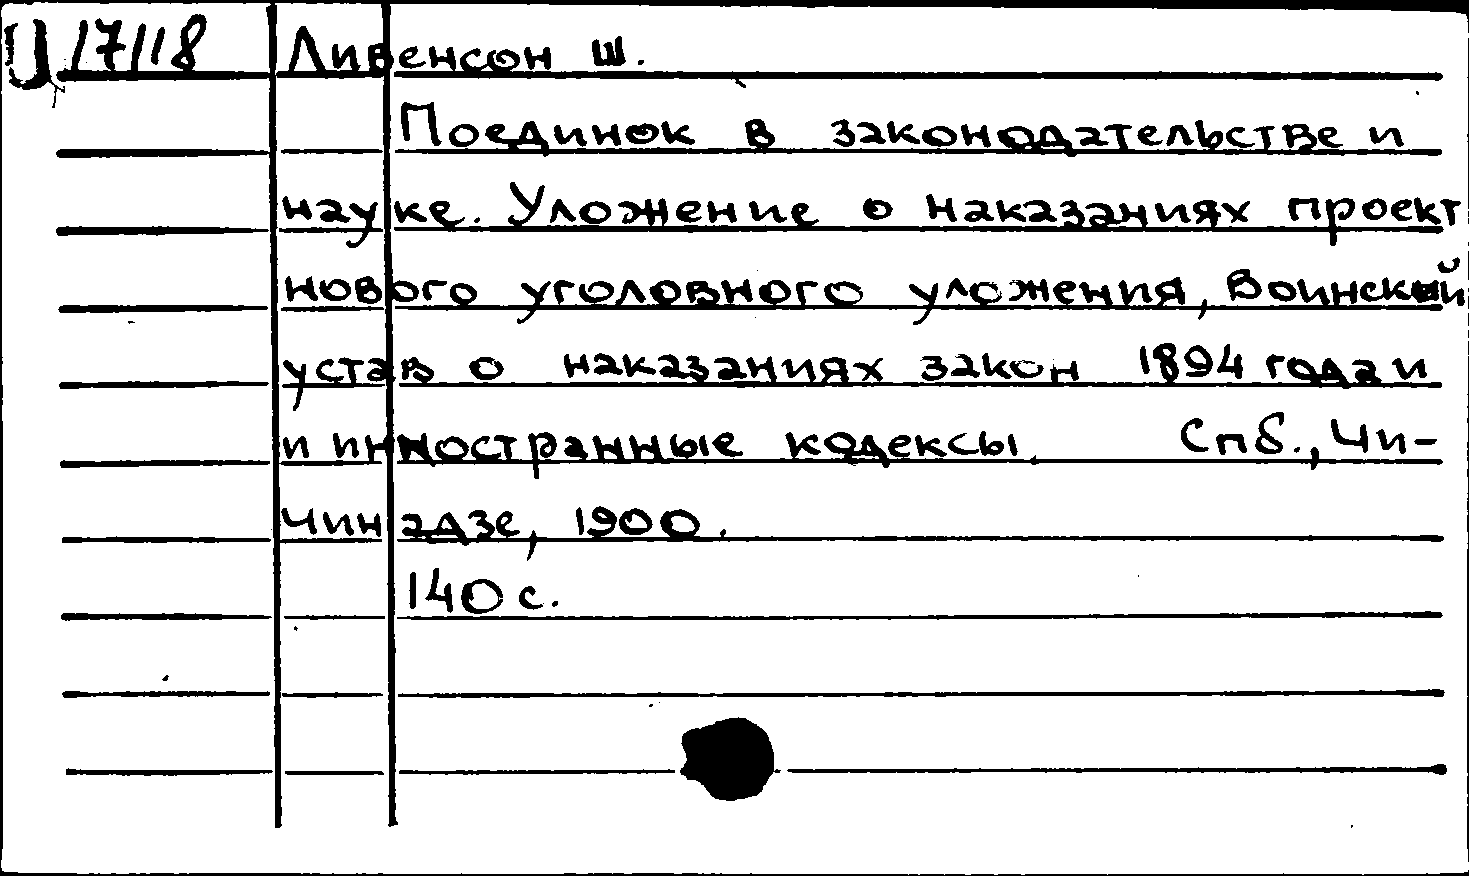 17118 Ливенсон Ш.
Поединок в законодательстве и
науке. Уложение о наказаниях проект
нового уголовного уложения, Воинский
устав о наказаниях закон 1894 года и
и инностранные кодексы. Спб., Чи-
чинадзе, 1900.
140 с.